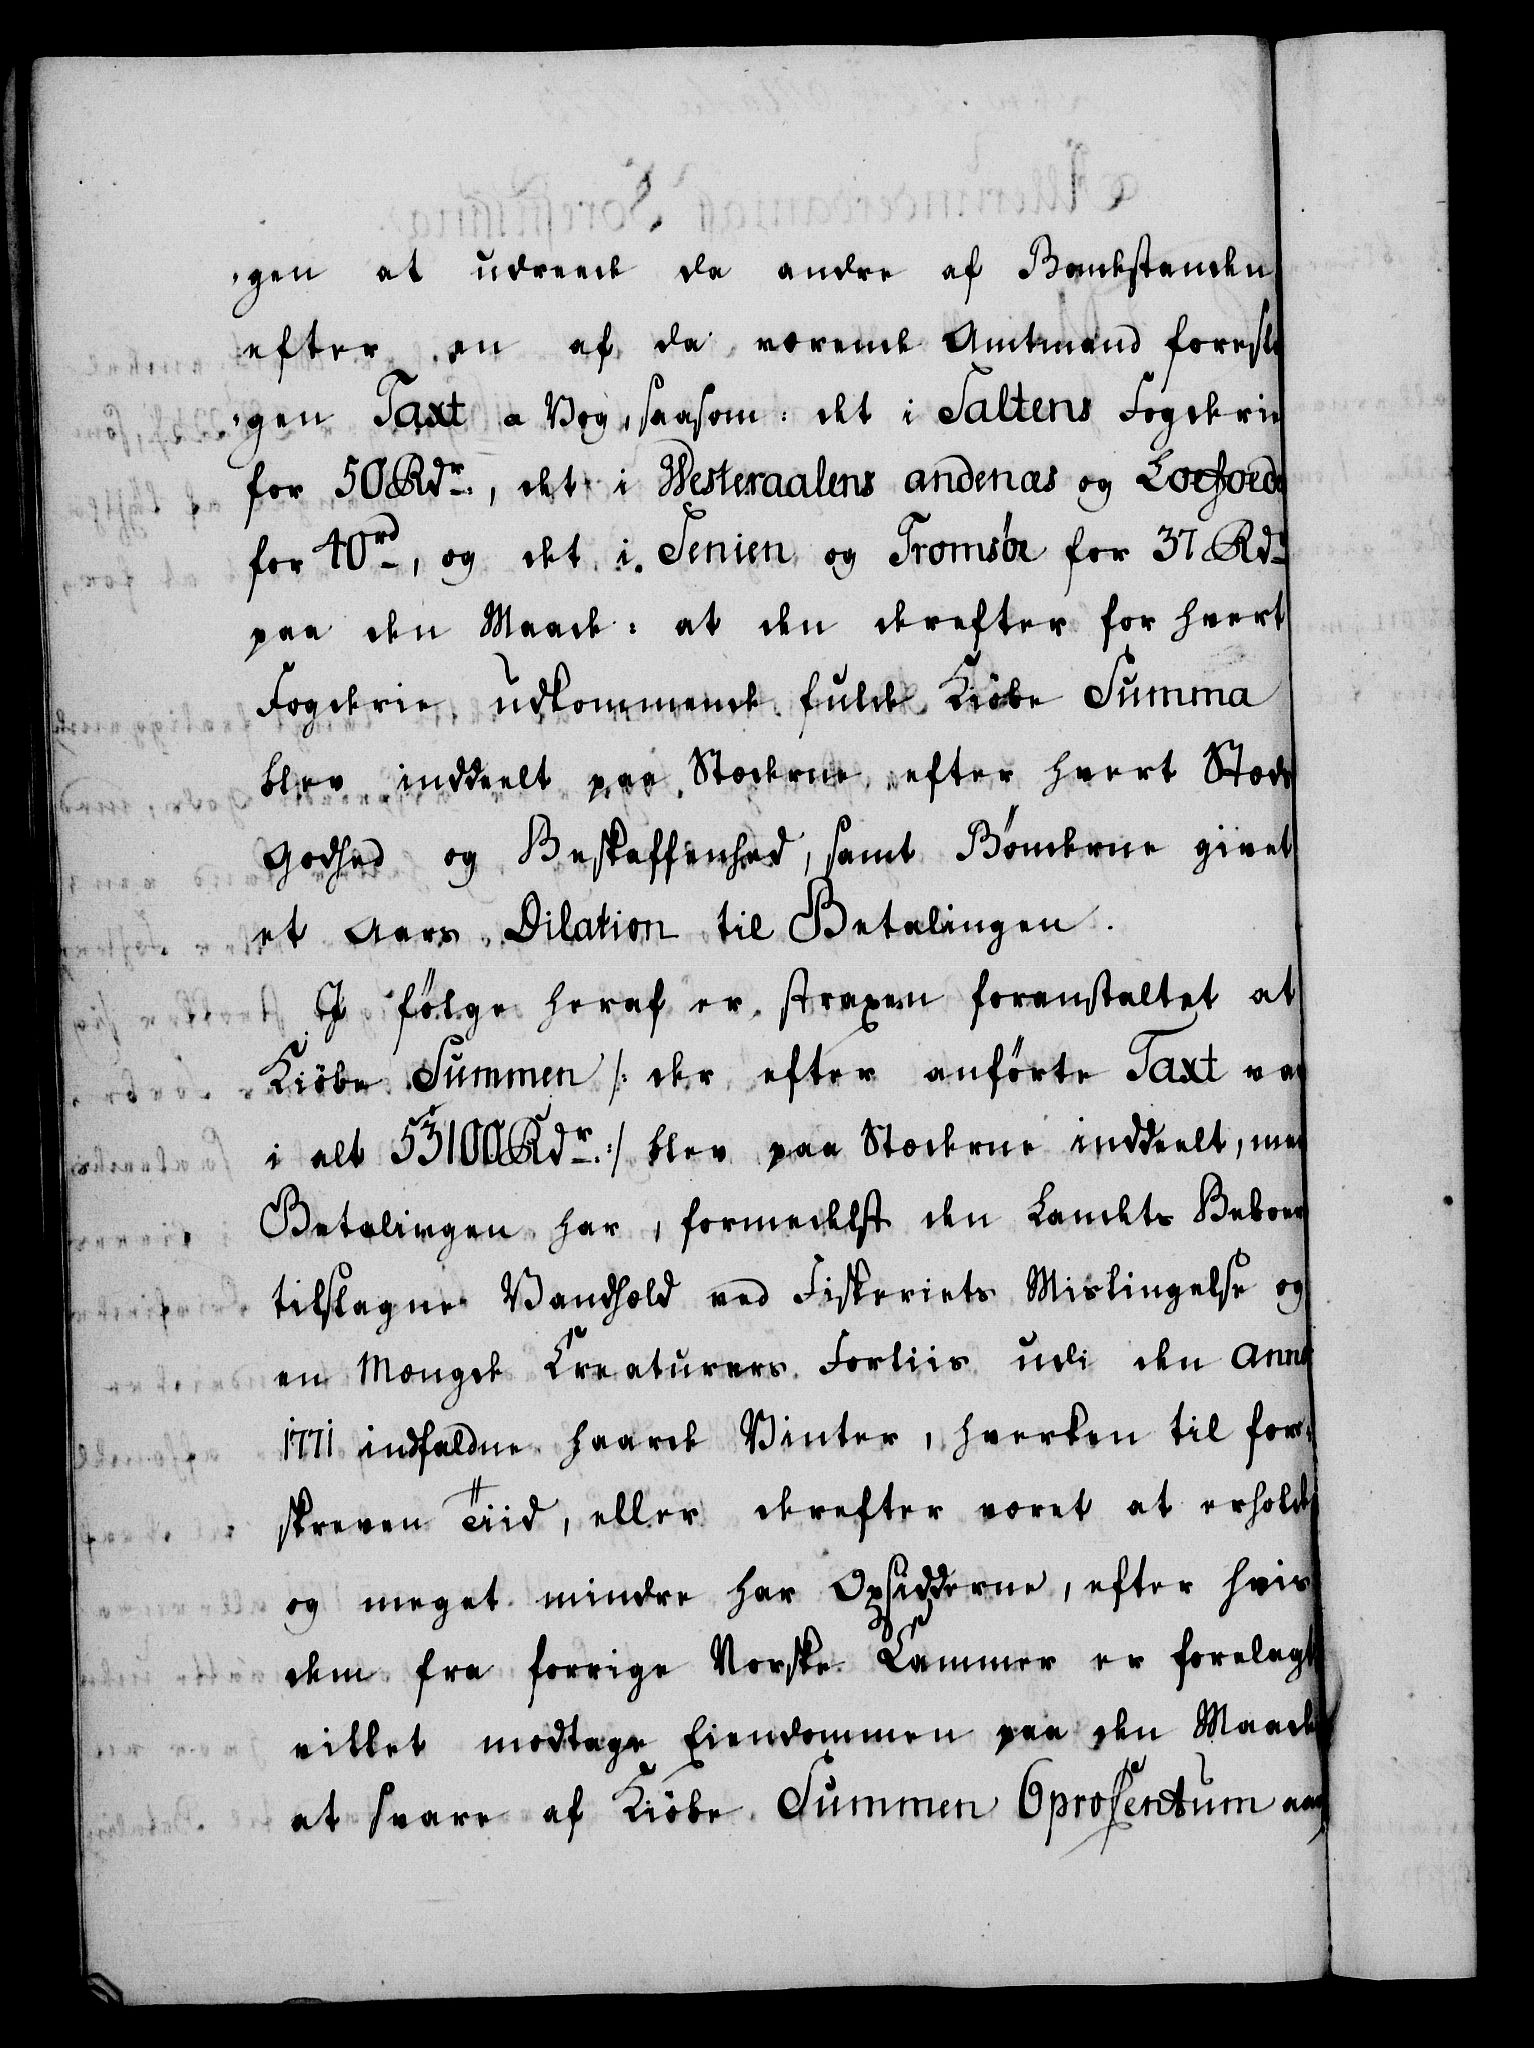 gen at udreede da andre af Bondestanden
efter en af da værende Amtmand foresla
gen Taxt a Vog, saasom: det i Saltens Fogderie
for 50 Rdr., det i Westeraalens andenæs og Loefoede
for 40rd, og det i Senien og Tromsöe for 37 Rdr
paa den Maade: at den derefter for hvert
Fogderie udkommende fulde Kiöbe Summa
blev inddeelt paa Stæderne efter hvert Stæds
Godhed og Beskaffenhed, samt Bönderne givet
et Aars Dilation til Betalingen.
I fölge heraf er straxen foranstaltet at
Kiöbe Summen /: der efter anförte Taxt var
i alt 53100 Rdr. :/ blev paa Stæderne inddeelt, men
Betalingen har, formedelst den Landets Beboere
tilslagne Vandhæld ved Fiskeriets Mislingelse og
en Mængde Creaturers Forliis udi den Anno
1771 indfaldne haarde Vinter, hverken til fore-
skreven Tiid, eller derefter været at erholde
og meget mindre har Opsidderne, efter hvis
dem fra forrige Norske Cammer er forelagt
villet modtage Eiendommen paa den Maade
at svare af Kiöbe Summen 6 prosentum aar